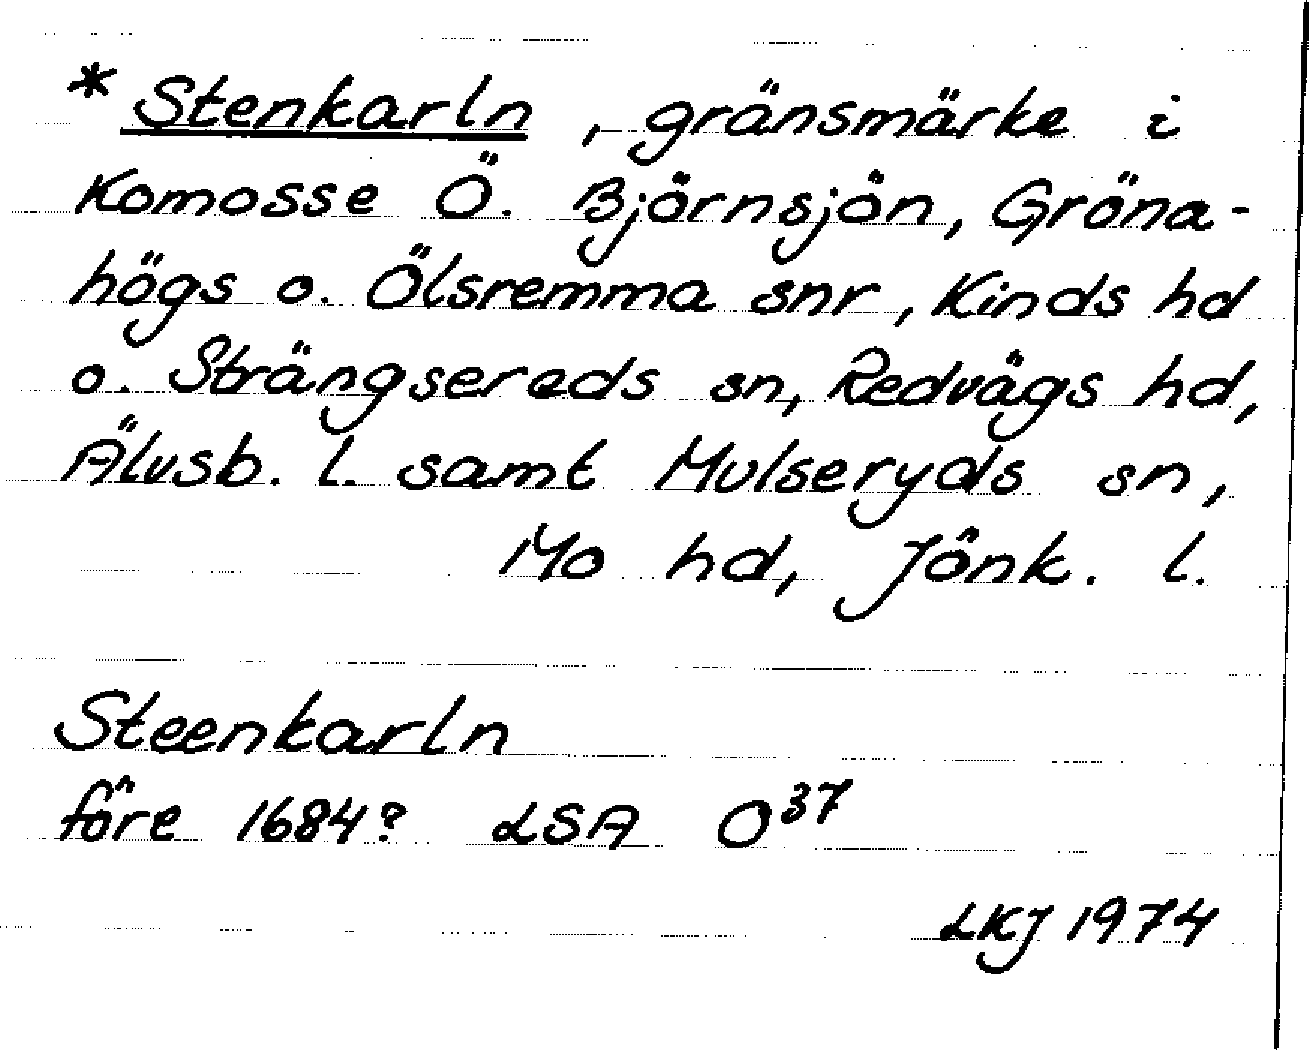 * Stenkarln, gränsmärke i
Komosse Ö. Björnsjön, Gröna-
högs o. Ölsremma snr, Kinds hd
o. Strängsereds sn, Redvägs hd,
Älvsb. l. samt Mulseryds sn,
Mo hd, Jönk. l.
Steenkarln
före 1684? LSA O³⁷
LKJ 1974